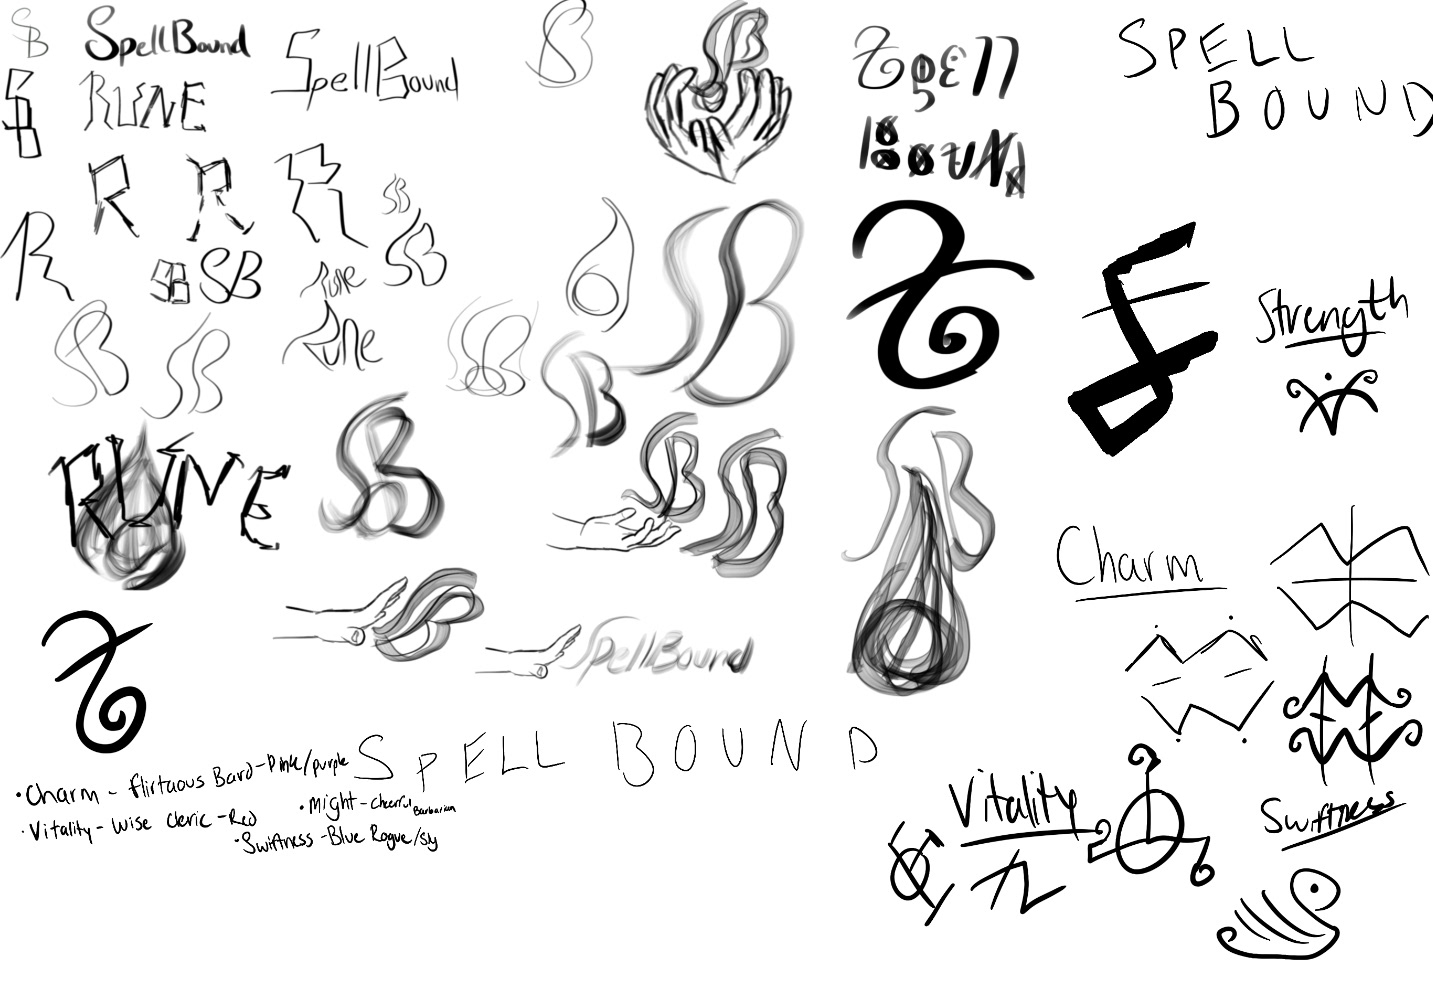 SB
SpellBound
SpellBound
SB
SB
SPELL
BOUND
SB
RUNE
R
R
R
R
SB
SB
SB
SB
Rune
Rune
SB
SB
SB
SB
SB
Strength
RUNE
SB
SB
SB
SB
Charm
SB
SpellBound
SPELL BOUND
• Charm - flirtaous Bard - Pink/purple
• Vitality - Wise Cleric - Red
• Might - Cheerful Barbarian
• Swiftness - Blue Rogue/Sly
Vitality
Swiftness